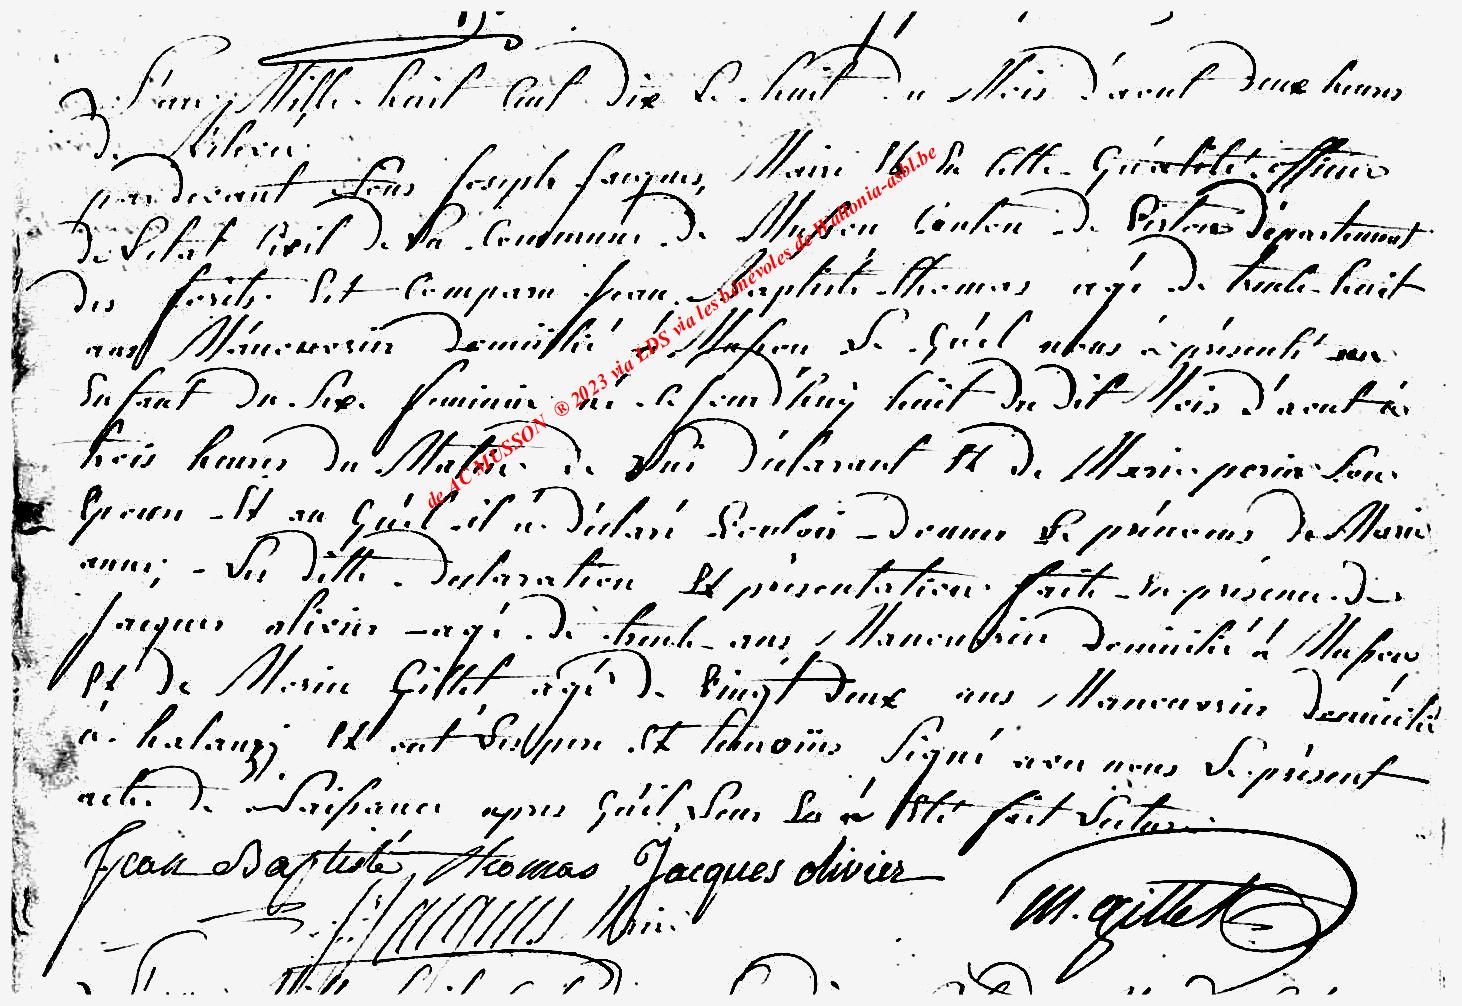 L'an Mille huit Cent dix Le huit du Mois d'aout deux heures
de Relevé
pardevant Nous Joseph Jacques, Maire Et En Cette Qualitté officier
de L'etat Civil de La Commune de Musson Canton de Virton département
des forêts Est Comparu Jean Baptiste thomas agé de trente huit
ans Manouvrier domicilié à Musson Le Quel nous à présenté un
Enfant du Sexe feminin né ce jourd'huy huit du dit Mois d'aout à
trois heures du Matin de Lui déclarant Et de Marie Son
Epouse Et au Quel il à déclaré Vouloir donner Le prénoms de Marie
anne, Les ditte declaration Et présentation faite En présence de
Jacques olivier agé de trente ans Manouvrier domicilié à Musson
Et de Marin Gillet agé de Vingt deux ans Manouvrier domicilié
à halanzy Et ont Les pere Et temoins Signé avec nous Le présent
acte de Naissance apres Qu'il Leur En à Eté fait Lecture
Jean Baptiste thomas Jacques olivier
M. gillet
J. Jacques Maire
de AC MUSSON ® 2023 via LDS via les bénévoles de Wallonia-asbl.be